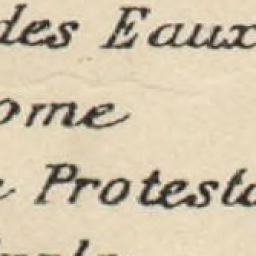 des Eaux
ome
Protesta